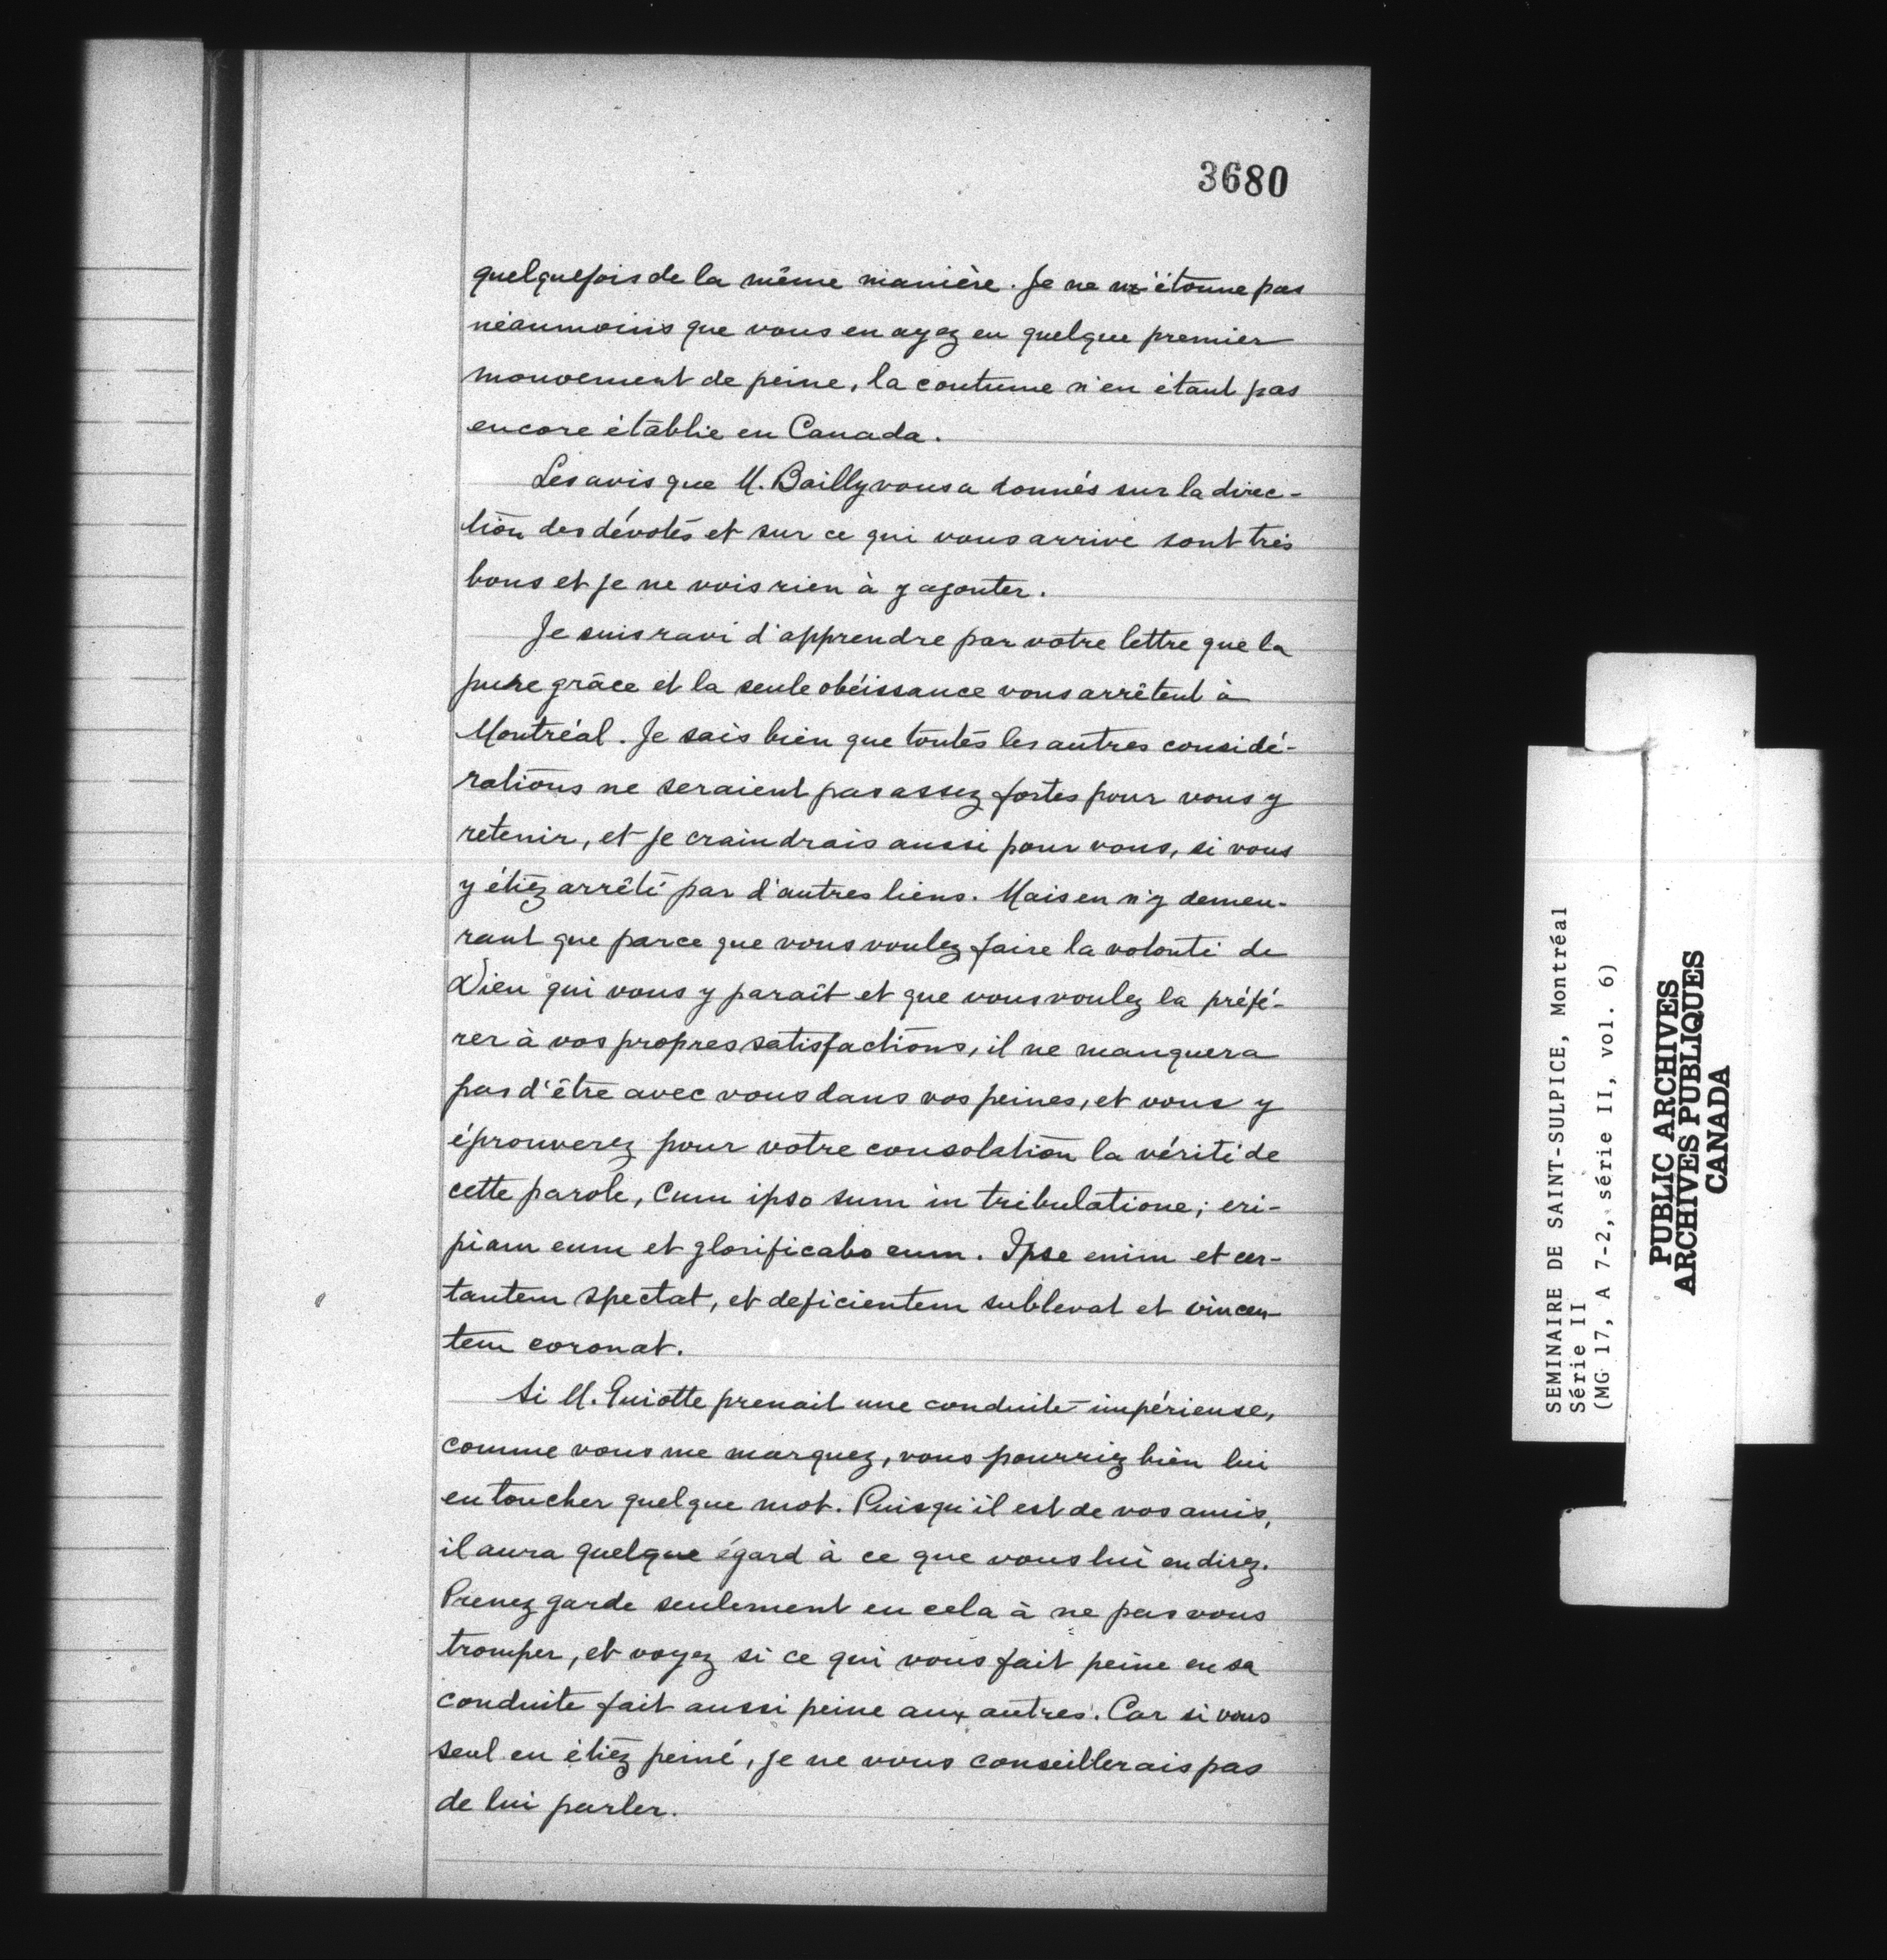 3680
quelquefois de la même manière. Je ne m'étonne pas
néanmoins que vous en ayez eu quelque premier
mouvement de peine, la coutume n'en étant pas
encore établie en Canada.
Les avis que M. Bailly vous a donnés sur la direc-
tion des dévotes et sur ce qui vous arrive sont très
bons et je ne vois rien à y ajouter.
Je suis ravi d'apprendre par votre lettre que la
pure grâce et la seule obéissance vous arrêtent à
Montréal. Je sais bien que toutes les autres considé-
rations ne seraient pas assez fortes pour vous y
retenir, et je craindrais aussi pour vous, si vous
y étiez arrêté par d'autres liens. Mais en n'y demeu-
rant que parce que vous voulez faire la volonté de
Dieu qui vous y paraît et que vous voulez la préfé-
rer à vos propres satisfactions, il ne manquera
pas d'être avec vous dans vos peines, et vous y
éprouverez pour votre consolation la vérité de
cette parole, Cum ipso sum in tribulatione; eri-
piam eum et glorificabo eum. Ipse enim et cer-
tantem spectat, et deficientem sublevat et vincen-
tem coronat.
Si M. Guiotte prenait une conduite impérieuse,
comme vous me marquez, vous pourriez bien lui
en toucher quelque mot. Puisqu'il est de vos amis,
il aura quelque égard à ce que vous lui en direz.
Prenez garde seulement en cela à ne pas vous
tromper, et voyez si ce qui vous fait peine en sa
conduite fait aussi peine aux autres. Car si vous
seul en étiez peiné, je ne vous conseillerais pas
de lui parler.
SEMINAIRE DE SAINT-SULPICE, Montréal
Série II
(MG 17, A 7-2, série II, vol. 6)
PUBLIC ARCHIVES
ARCHIVES PUBLIQUES
CANADA